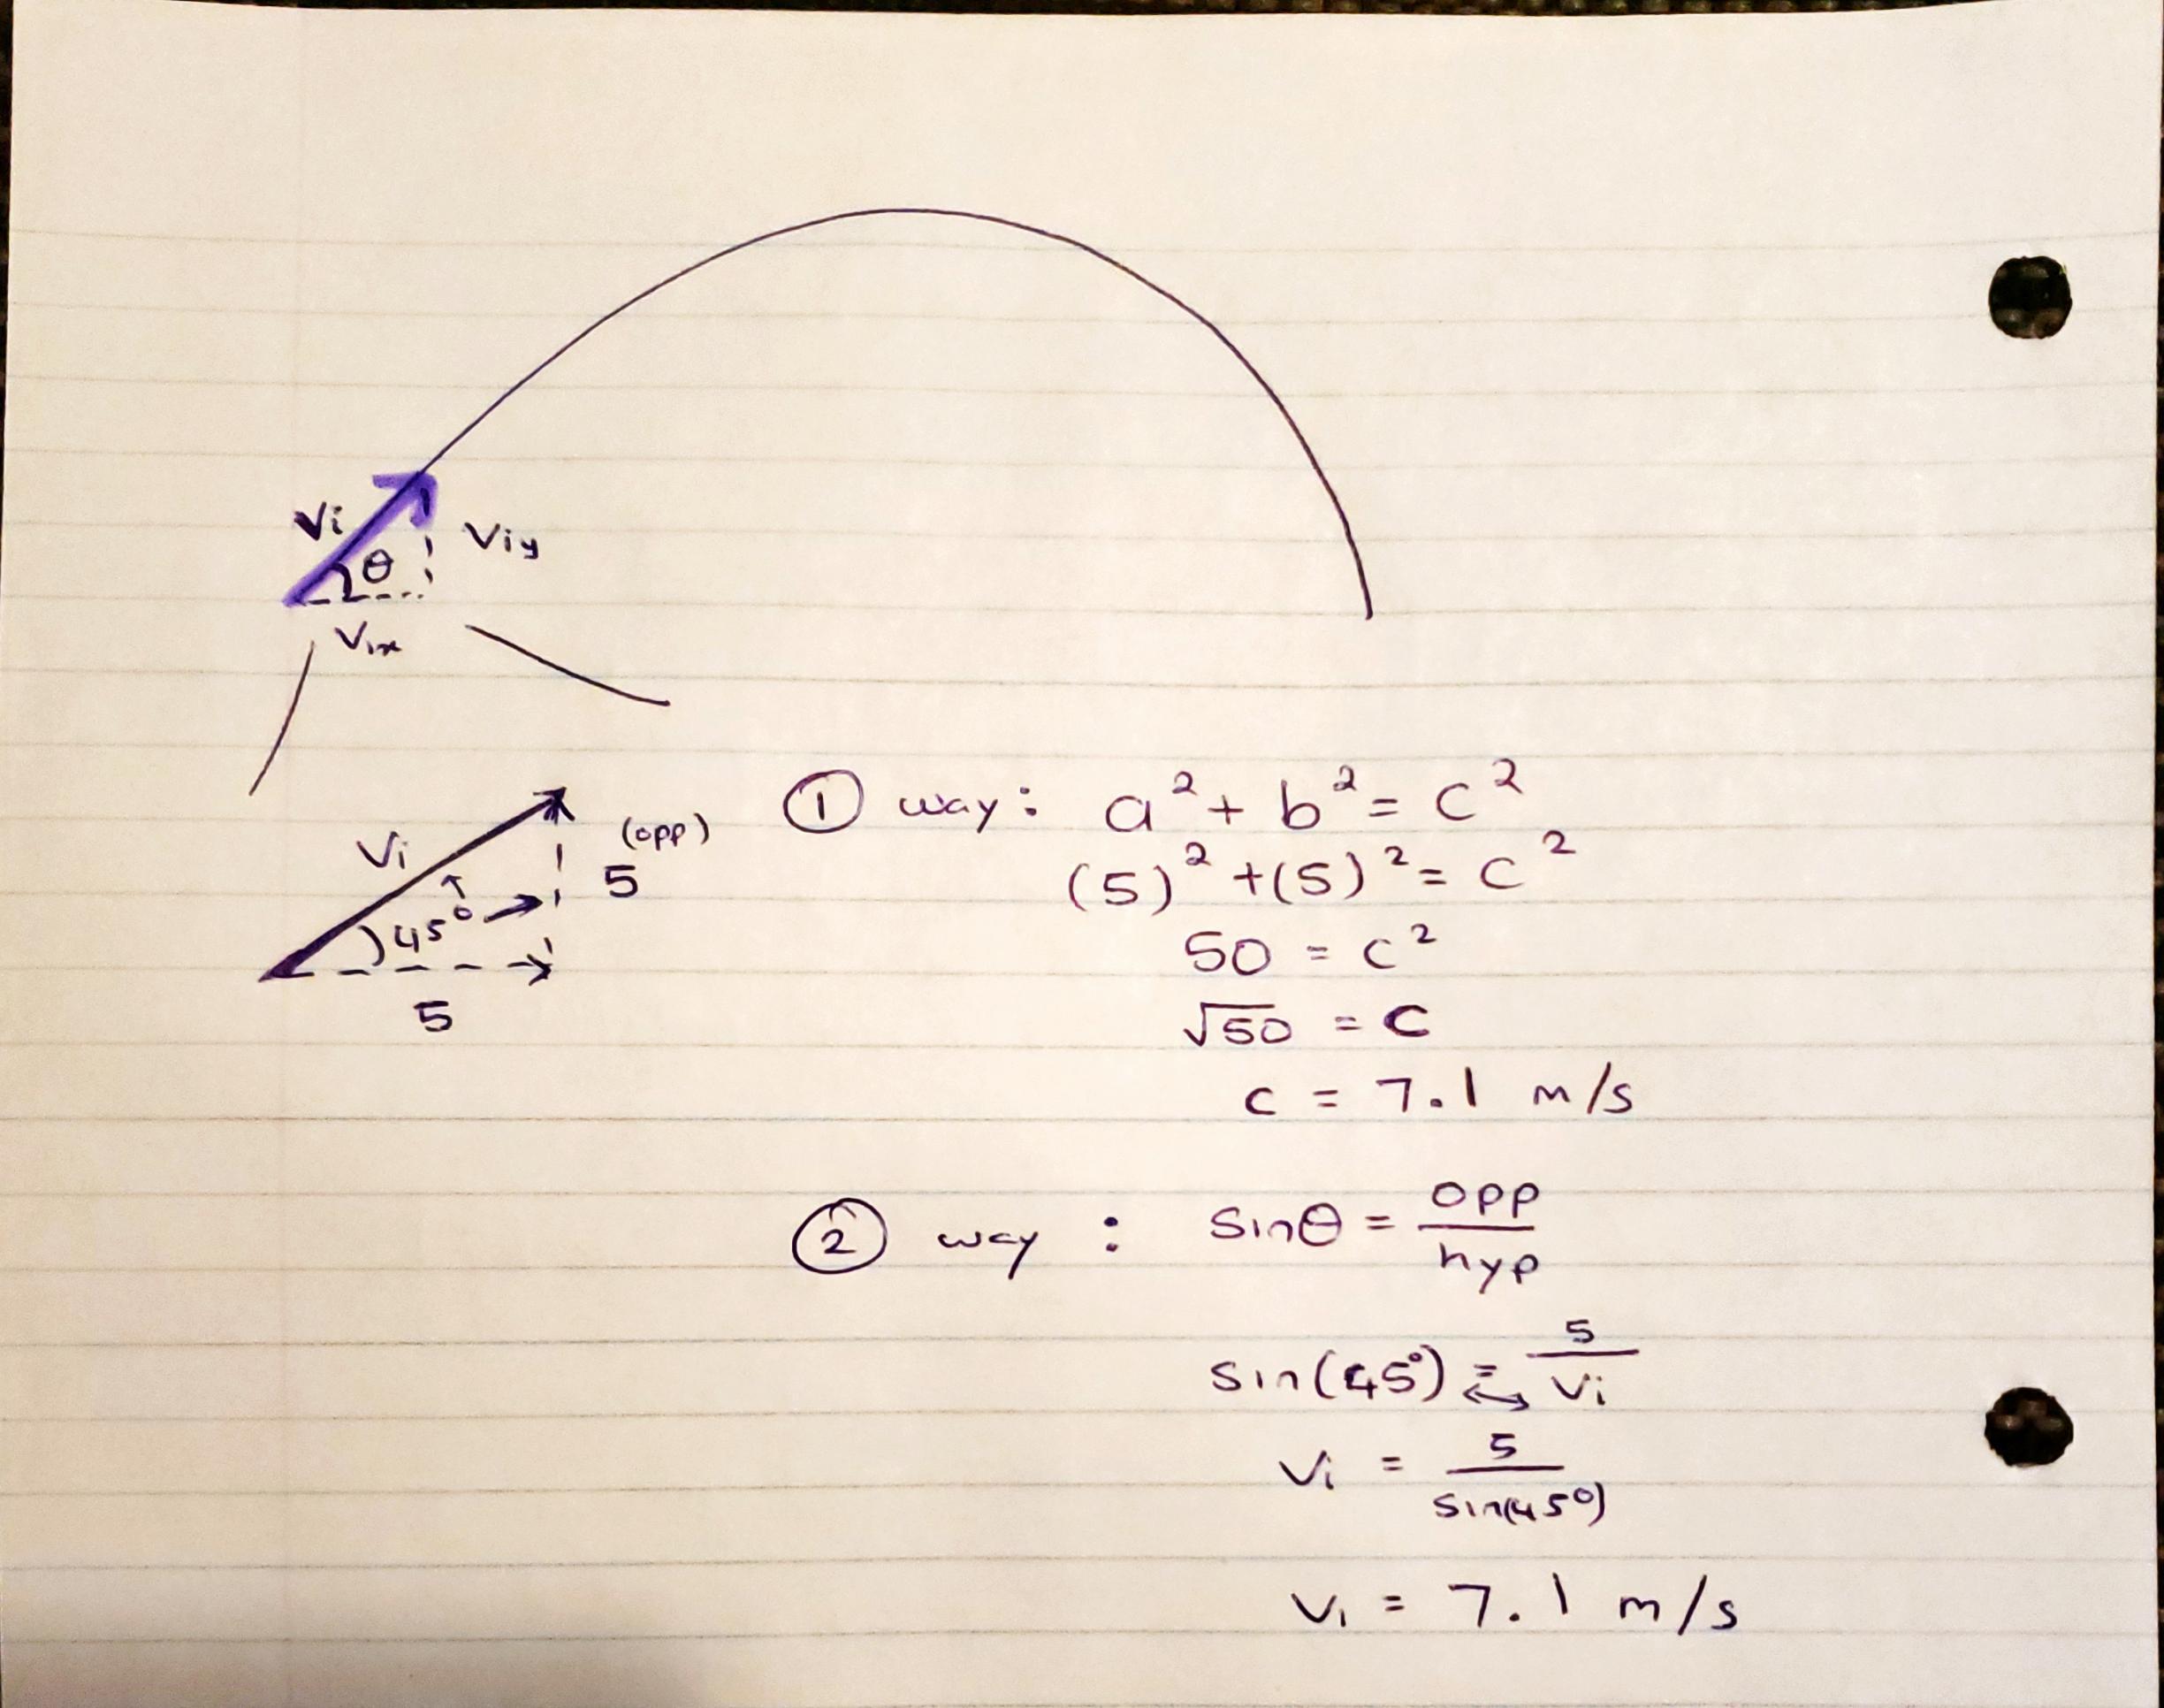 Vi
θ
Viy
Vix
Vi
(opp)
5
45°
5
① way: a² + b² = c²
(5)² + (5)² = c²
50 = c²
√50 = c
c = 7.1 m/s
② way : sinθ = opp/hyp
sin(45°) = 5/Vi
Vi = 5/sin(45°)
Vi = 7.1 m/s